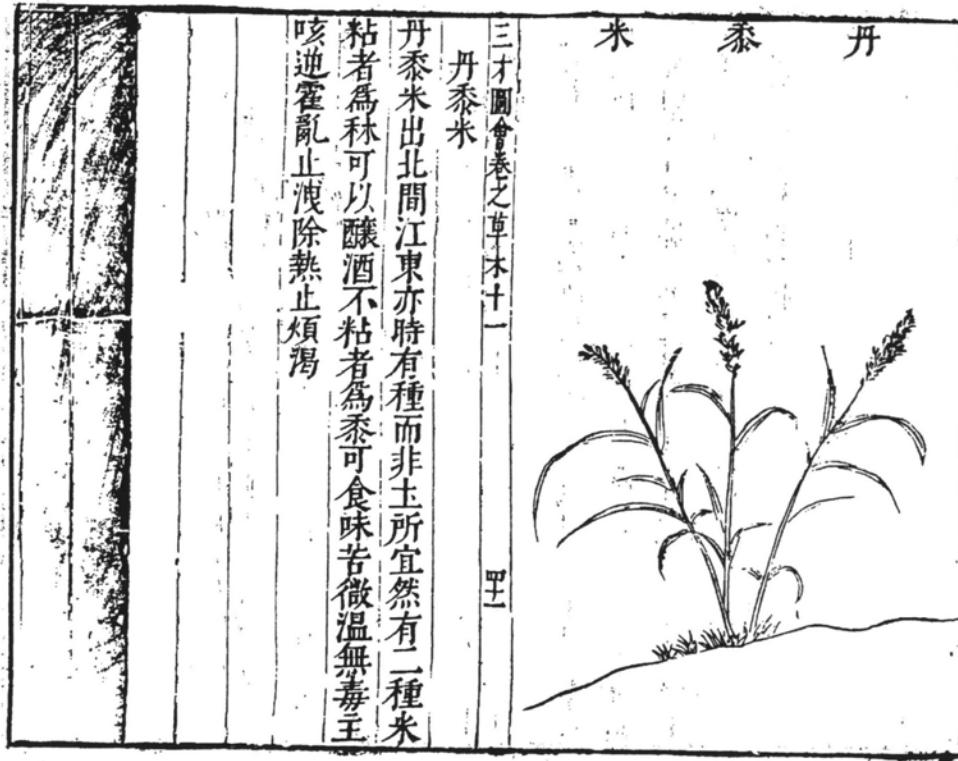 丹黍米
三才圖會卷之草木十一
四十二
丹黍米
丹黍米出北間江東亦時有種而非土所宜然有二種米
粘者爲秫可以釀酒不粘者爲黍可食味苦微溫無毒主
咳逆霍亂止洩除熱止煩渴